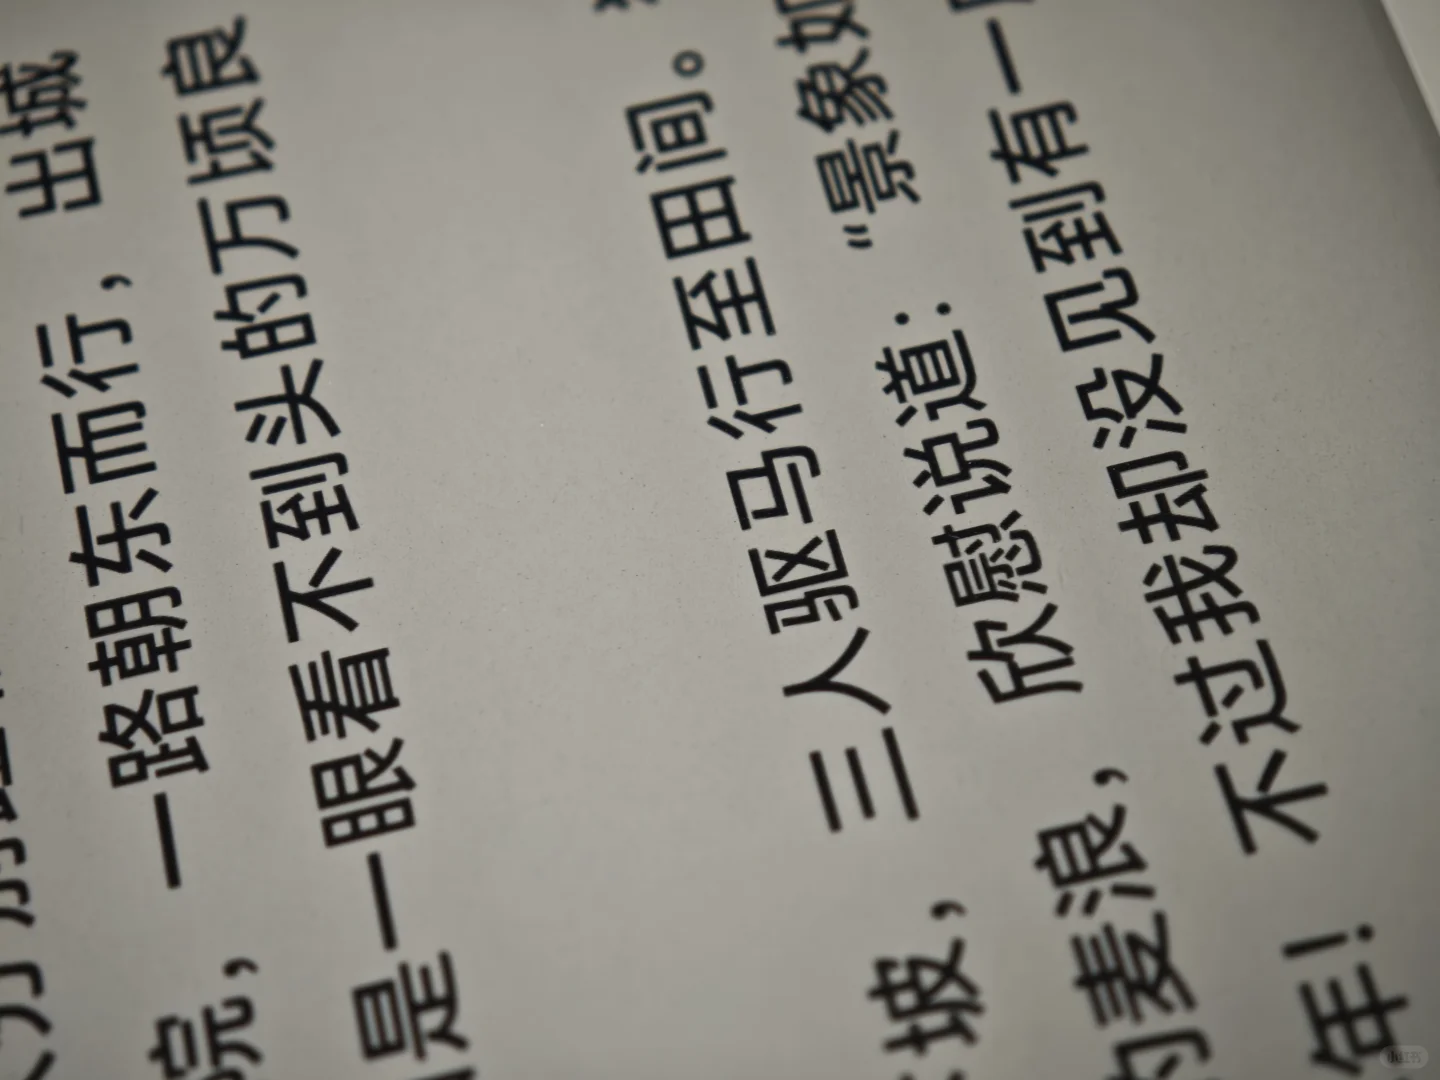 院，一路朝东而行，出城
是一眼看不到头的万顷良
坡，三人驱马行至田间。
的麦浪，欣慰说道：“景象如
年！不过我却没见到有一